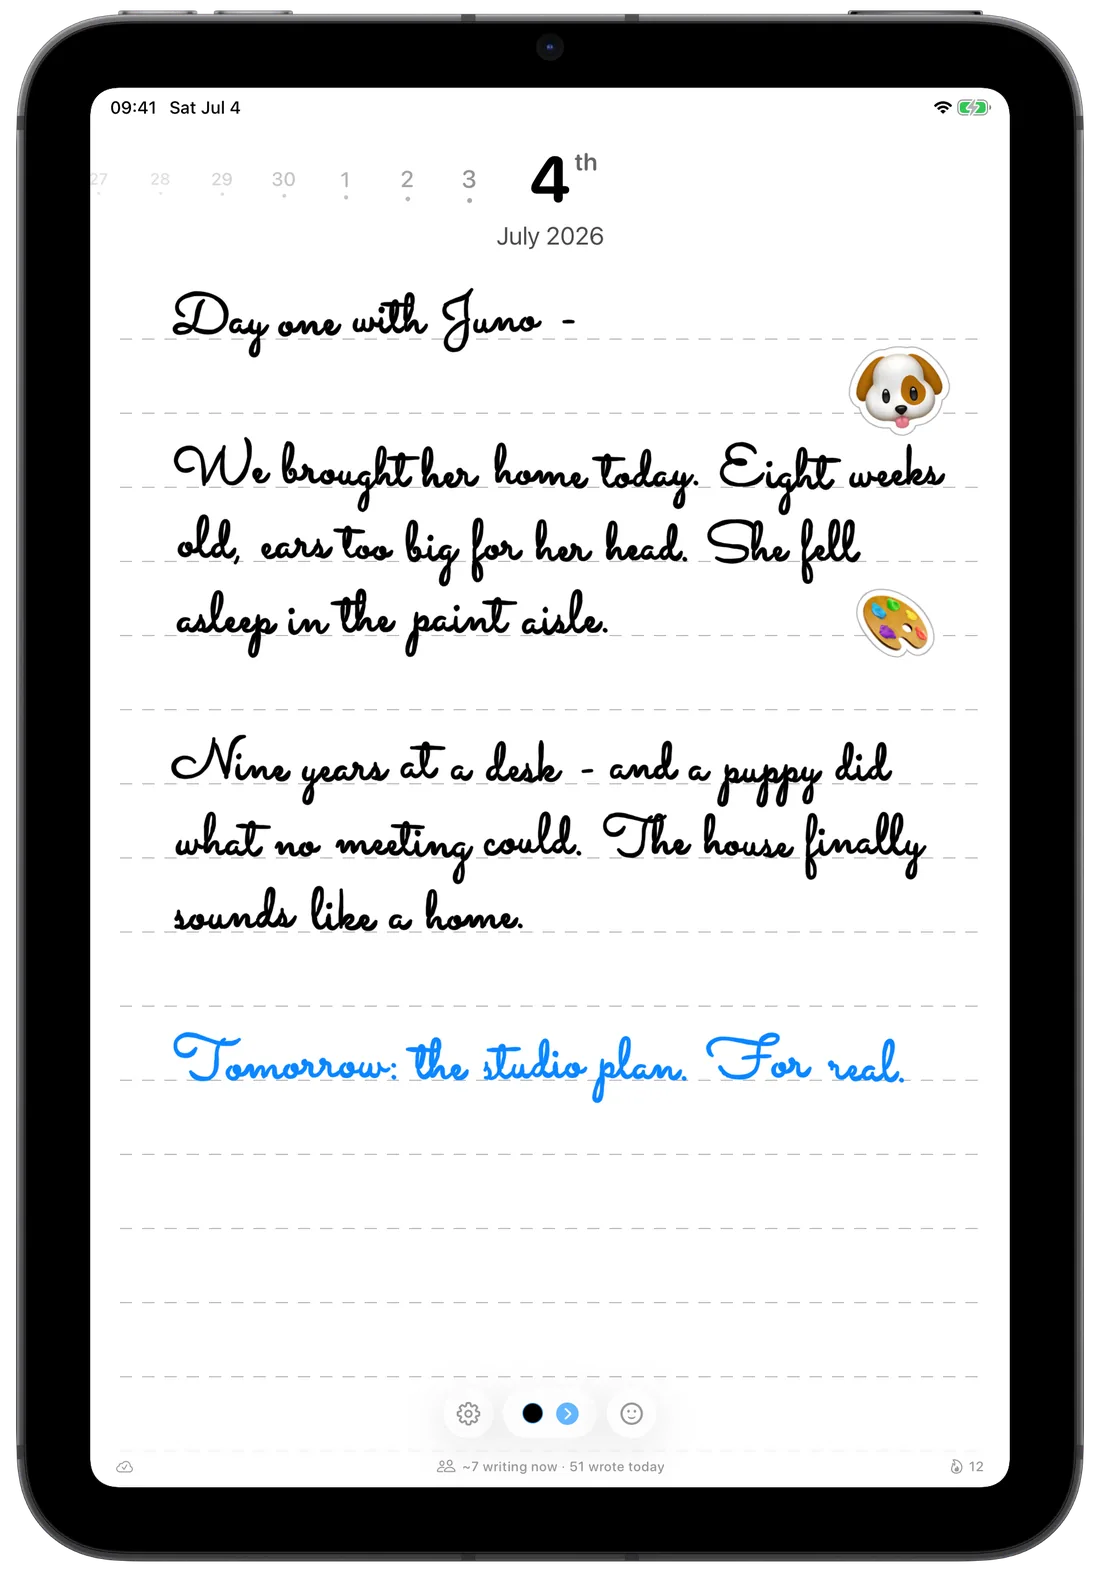 09:41 Sat Jul 4
27 28 29 30 1 2 3 4th
July 2026
Day one with Juno -
We brought her home today. Eight weeks
old, ears too big for her head. She fell
asleep in the paint aisle.
Nine years at a desk - and a puppy did
what no meeting could. The house finally
sounds like a home.
Tomorrow: the studio plan. For real.
~7 writing now · 51 wrote today
12